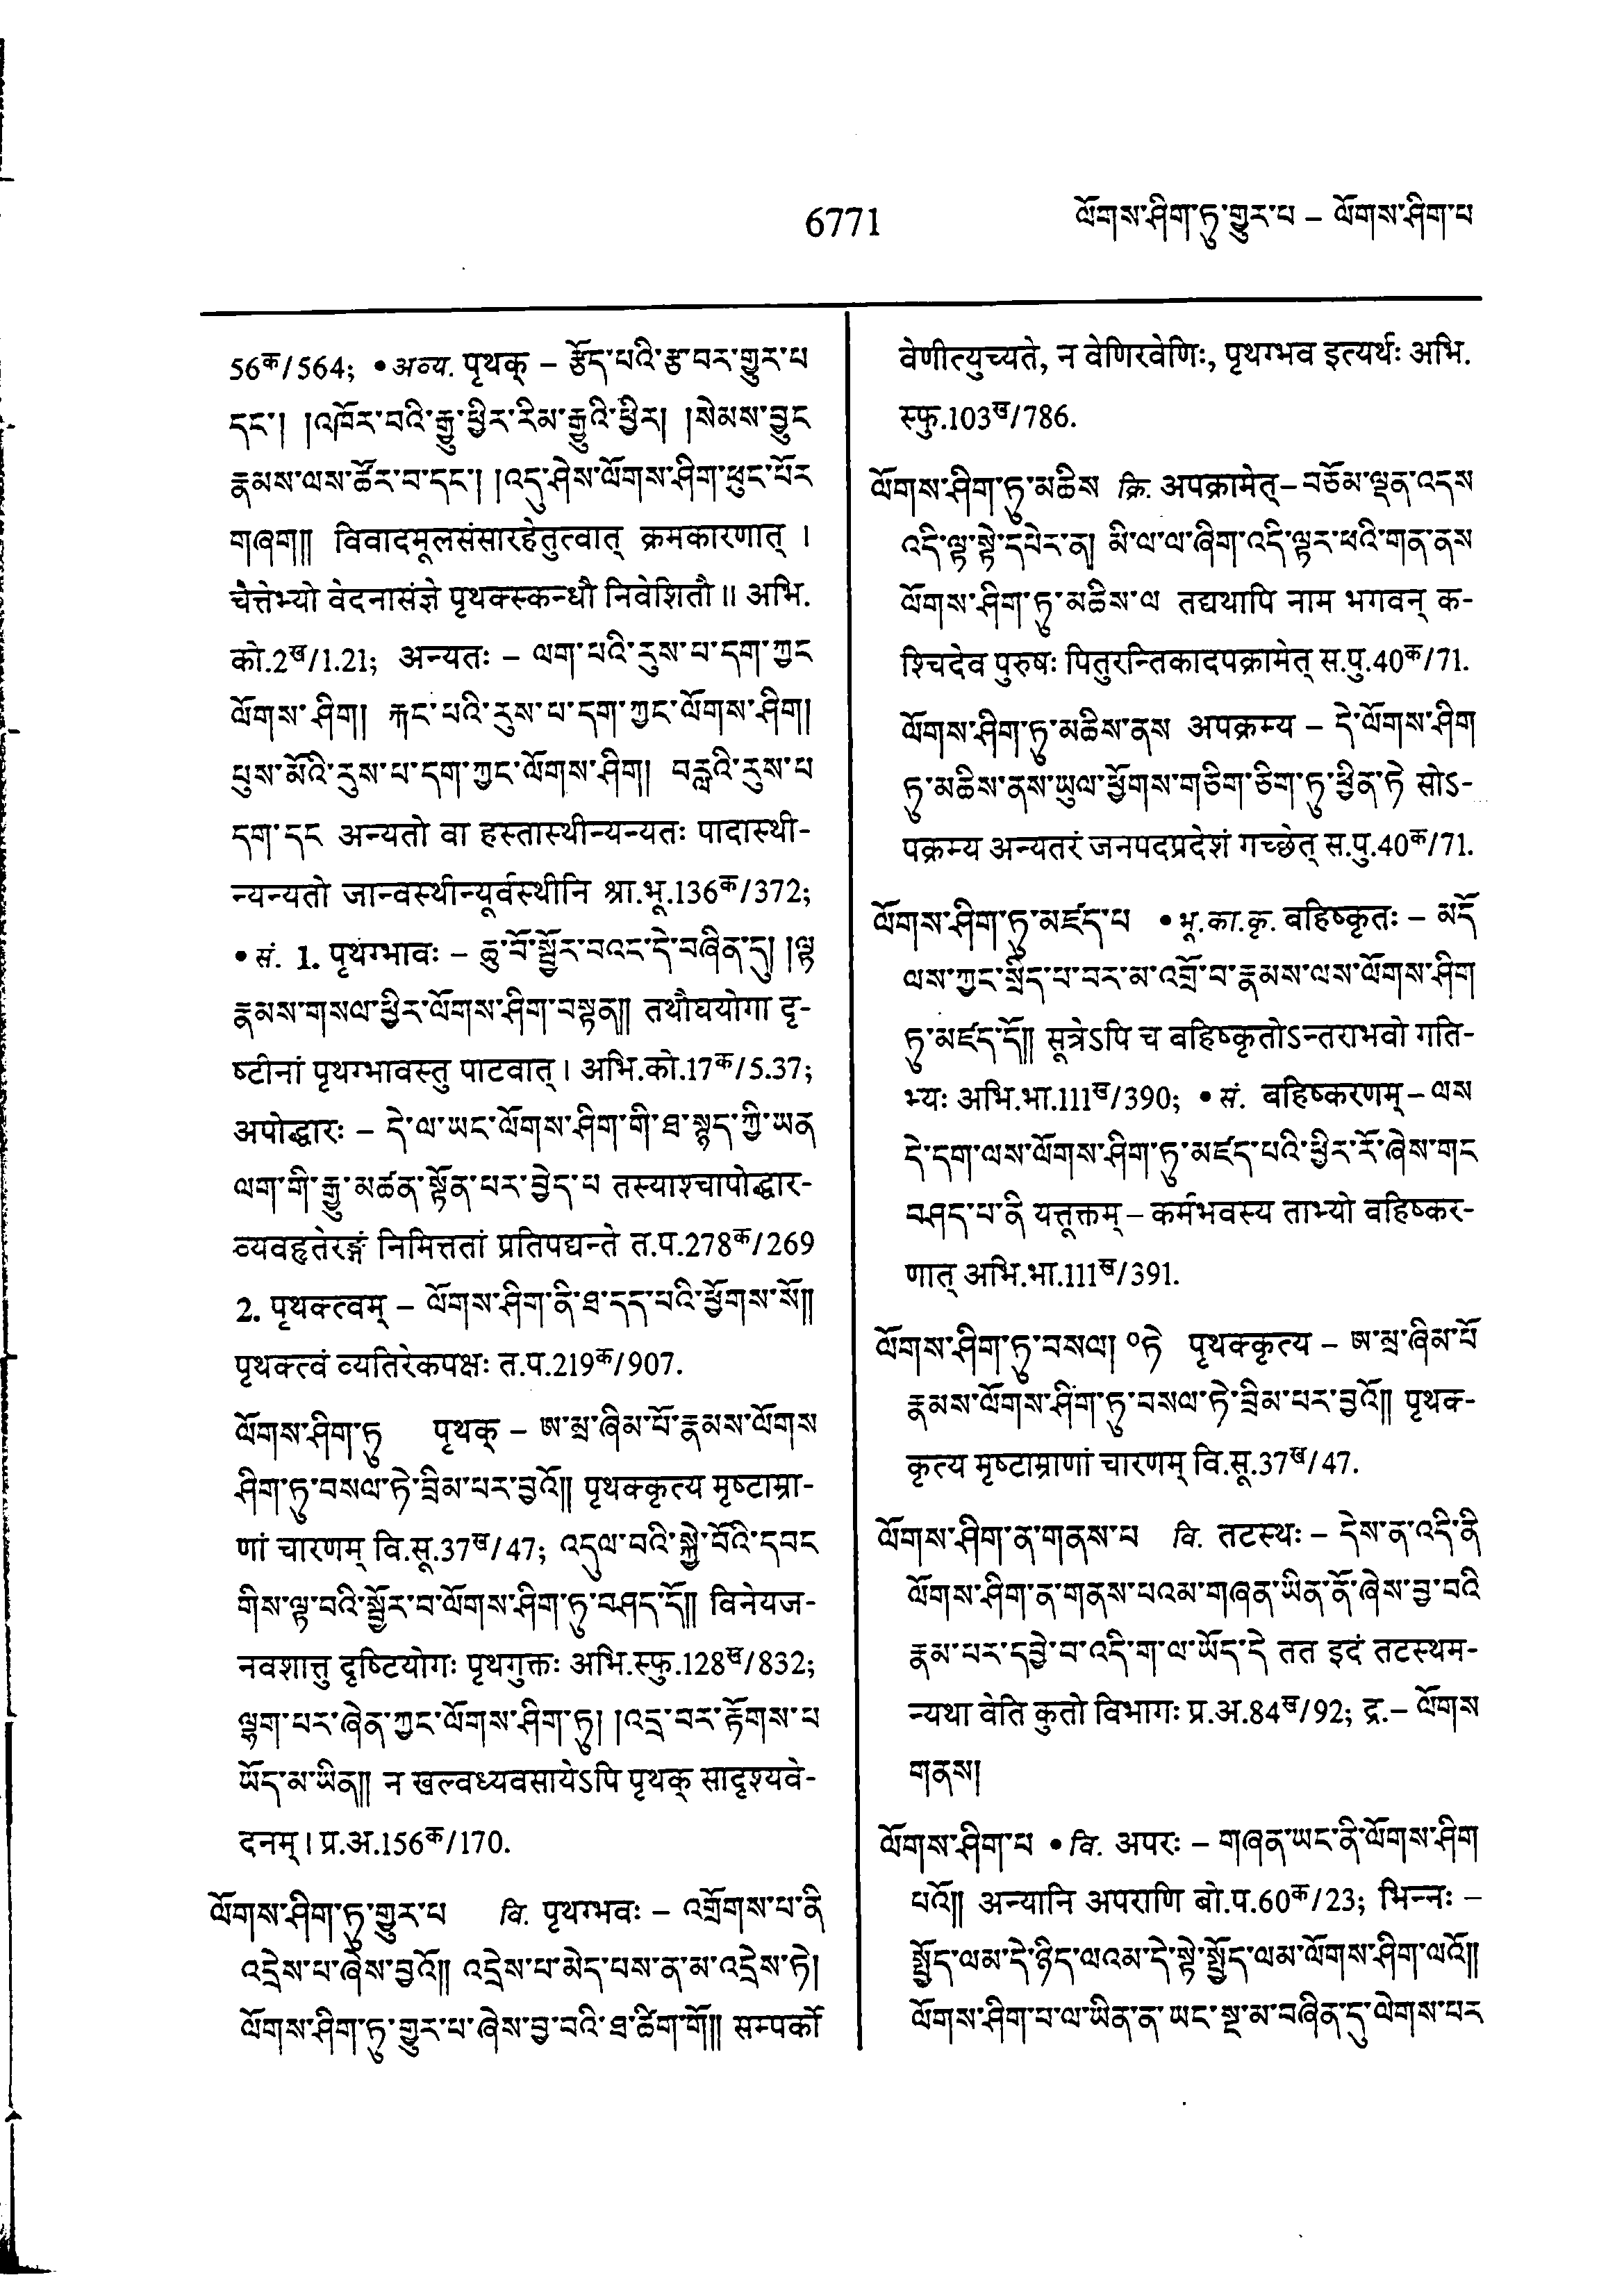 6771
ལོགས་ཤིག་ཏུ་གྱུར་པ – ལོགས་ཤིག་པ
56क/564; • अव्य. पृथक् – རྩོད་པའི་རྩ་བར་གྱུར་པ
དང་། །འཁོར་བའི་རྒྱུ་ཕྱིར་རིམ་རྒྱུའི་ཕྱིར། །སེམས་བྱུང
རྣམས་ལས་ཚོར་བ་དང་། །འདུ་ཤེས་ལོགས་ཤིག་ཕུང་པོར
གཞག༎ विवादमूलसंसारहेतुत्वात् क्रमकारणात् ।
चैत्तेभ्यो वेदनासंज्ञे पृथक्स्कन्धौ निवेशितौ ॥ अभि.
को.2ख/1.21; अन्यतः – ལག་པའི་རུས་པ་དག་ཀྱང
ལོགས་ཤིག། རྐང་པའི་རུས་པ་དག་ཀྱང་ལོགས་ཤིག།
པུས་མོའི་རུས་པ་དག་ཀྱང་ལོགས་ཤིག། བརླའི་རུས་པ
དག་དང अन्यतो वा हस्तास्थीन्यन्यतः पादास्थी-
न्यन्यतो जान्वस्थीन्यूर्वस्थीनि श्रा.भू.136क/372;
• सं. 1. पृथग्भावः – ཆུ་བོ་སྦྱོར་བའང་དེ་བཞིན་དུ། །ལྟ
རྣམས་གསལ་ཕྱིར་ལོགས་ཤིག་བསྟན༎ तथौघयोगा दृ-
ष्टीनां पृथग्भावस्तु पाटवात् । अभि.को.17क/5.37;
अपोद्धारः – དེ་ལ་ཡང་ལོགས་ཤིག་གི་ཐ་སྙད་ཀྱི་ཡན
ལག་གི་རྒྱུ་མཚན་སྟོན་པར་བྱེད་པ तस्याश्चापोद्धार-
व्यवहृतेरङ्गं निमित्ततां प्रतिपद्यन्ते त.प.278क/269
2. पृथक्त्वम् – ལོགས་ཤིག་ནི་ཐ་དད་པའི་ཕྱོགས་སོ༎
पृथक्त्वं व्यतिरेकपक्षः त.प.219क/907.
ལོགས་ཤིག་ཏུ पृथक् – ཨ་མྲ་ཞིམ་པོ་རྣམས་ལོགས
ཤིག་ཏུ་བསལ་ཏེ་བྲིམ་པར་བྱའོ༎ पृथक्कृत्य मृष्टाम्रा-
णां चारणम् वि.सू.37ख/47; འདུལ་བའི་སྐྱེ་བོའི་དབང
གིས་ལྟ་བའི་སྦྱོར་བ་ལོགས་ཤིག་ཏུ་བཤད་དོ༎ विनेयज-
नवशात्तु दृष्टियोगः पृथगुक्तः अभि.स्फु.128ख/832;
ལྷག་པར་ཞེན་ཀྱང་ལོགས་ཤིག་ཏུ། །འདྲ་བར་རྟོགས་པ
ཡོད་མ་ཡིན༎ न खल्वध्यवसायेऽपि पृथक् सादृश्यवे-
दनम् । प्र.अ.156क/170.
ལོགས་ཤིག་ཏུ་གྱུར་པ वि. पृथग्भवः – འགྲོགས་པ་ནི
འདྲེས་པ་ཞེས་བྱའོ༎ འདྲེས་པ་མེད་པས་ན་མ་འདྲེས་ཏེ།
ལོགས་ཤིག་ཏུ་གྱུར་པ་ཞེས་བྱ་བའི་ཐ་ཚིག་གོ༎ सम्पर्को
वेणीत्युच्यते, न वेणिरवेणिः, पृथग्भव इत्यर्थः अभि.
स्फु.103ख/786.
ལོགས་ཤིག་ཏུ་མཆིས क्रि. अपक्रामेत् – བཅོམ་ལྡན་འདས
འདི་ལྟ་སྟེ་དཔེར་ན། མི་ལ་ལ་ཞིག་འདི་ལྟར་ཕའི་གན་ནས
ལོགས་ཤིག་ཏུ་མཆིས་ལ तद्यथापि नाम भगवन् क-
श्चिदेव पुरुषः पितुरन्तिकादपक्रामेत् स.पु.40क/71.
ལོགས་ཤིག་ཏུ་མཆིས་ནས अपक्रम्य – དེ་ལོགས་ཤིག
ཏུ་མཆིས་ནས་ཡུལ་ཕྱོགས་གཅིག་ཅིག་ཏུ་ཕྱིན་ཏེ सोऽ-
पक्रम्य अन्यतरं जनपदप्रदेशं गच्छेत् स.पु.40क/71.
ལོགས་ཤིག་ཏུ་མཛད་པ • भू.का.कृ. बहिष्कृतः – མདོ
ལས་ཀྱང་སྲིད་པ་བར་མ་འགྲོ་བ་རྣམས་ལས་ལོགས་ཤིག
ཏུ་མཛད་དོ༎ सूत्रेऽपि च बहिष्कृतोऽन्तराभवो गति-
भ्यः अभि.भा.111ख/390; • सं. बहिष्करणम् – ལས
དེ་དག་ལས་ལོགས་ཤིག་ཏུ་མཛད་པའི་ཕྱིར་རོ་ཞེས་གང
བཤད་པ་ནི यत्तूक्तम् – कर्मभवस्य ताभ्यो वहिष्कर-
णात् अभि.भा.111ख/391.
ལོགས་ཤིག་ཏུ་བསལ། ༠ཏེ पृथक्कृत्य – ཨ་མྲ་ཞིམ་པོ
རྣམས་ལོགས་ཤིག་ཏུ་བསལ་ཏེ་བྲིམ་པར་བྱའོ༎ पृथक-
कृत्य मृष्टाम्राणां चारणम् वि.सू.37ख/47.
ལོགས་ཤིག་ན་གནས་པ वि. तटस्थः – དེས་ན་འདི་ནི
ལོགས་ཤིག་ན་གནས་པའམ་གཞན་ཡིན་ནོ་ཞེས་བྱ་བའི
རྣམ་པར་དབྱེ་བ་འདི་ག་ལ་ཡོད་དེ तत इदं तटस्थम-
न्यथा वेति कुतो विभागः प्र.अ.84ख/92; द्र.– ལོགས
གནས།
ལོགས་ཤིག་པ • वि. अपरः – གཞན་ཡང་ནི་ལོགས་ཤིག
པའོ༎ अन्यानि अपराणि बो.प.60क/23; भिन्नः –
སྤྱོད་ལམ་དེ་ཉིད་ལའམ་དེ་སྟེ་སྤྱོད་ལམ་ལོགས་ཤིག་ལའོ༎
ལོགས་ཤིག་པ་ལ་ཡིན་ན་ཡང་སྔ་མ་བཞིན་དུ་ལེགས་པར